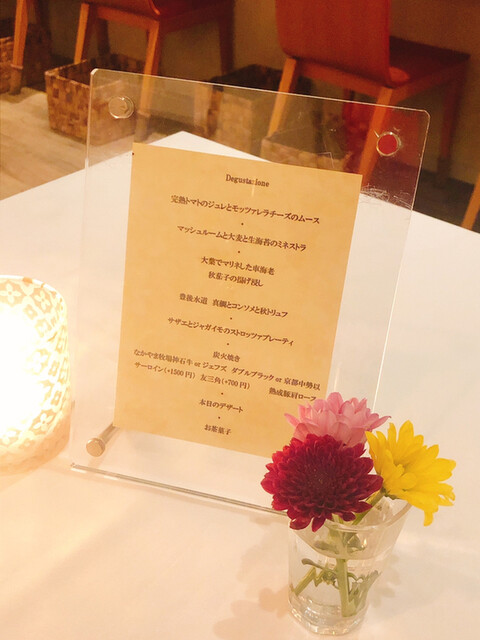 Degustazione
完熟トマトのジュレとモッツァレラチーズのムース
マッシュルームと大麦と生海苔のミネストラ
大葉でマリネした車海老
秋茄子の揚げ浸し
豊後水道 真鯛とコンソメと秋トリュフ
サザエとジャガイモのストロッツァプレーティ
炭火焼き
なかやま牧場神石牛 or ジェフズ ダブルブラック or 京都中勢以
サーロイン(+1500円) 友三角(+700円) 熟成豚肩ロース
本日のデザート
お茶菓子